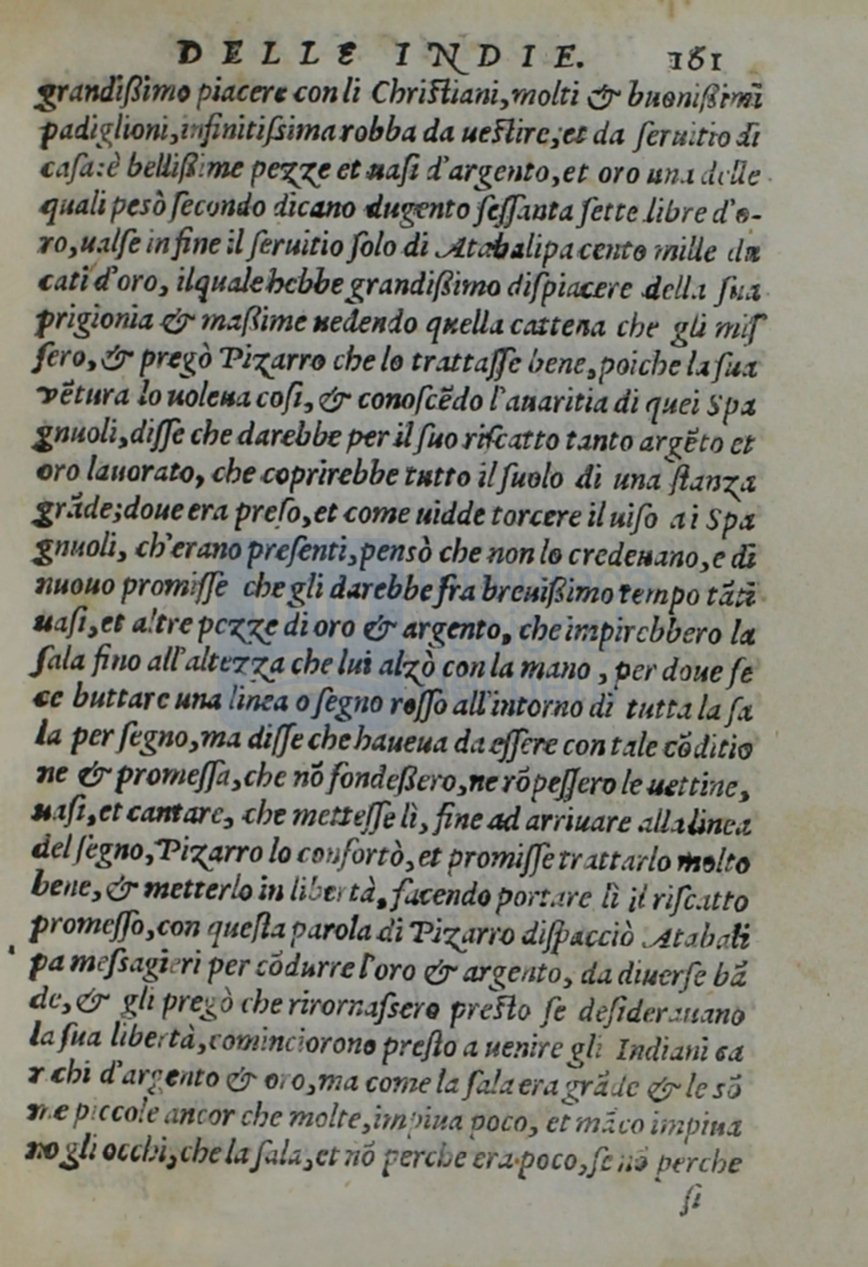 DELLE INDIE. 161
grandißimo piacere con li Christiani, molti & buonißimi
padiglioni, infinitißima robba da uestire, et da seruitio di
casa: è bellißime pezze et uasi d'argento, et oro una delle
quali pesò secondo dicano dugento sessanta sette libre d'o-
ro, ualse in fine il seruitio solo di Atabalipa cento mille du
cati d'oro, ilquale hebbe grandißimo dispiacere della sua
prigionia & maßime uedendo quella cattena che gli miss
sero, & pregò Pizarro che lo trattasse bene, poiche la sua
vẽtura lo uoleua cosi, & conoscẽdo l'auaritia di quei Spa
gnuoli, disse che darebbe per il suo riscatto tanto argẽto et
oro lauorato, che coprirebbe tutto il suolo di una stanza
grãde; doue era preso, et come uidde torcere il uiso ai Spa
gnuoli, ch'erano presenti, pensò che non lo credeuano, e di
nuouo promisse che gli darebbe fra breuißimo tempo tãti
uasi, et altre pezze di oro & argento, che impirebbero la
sala fino all'altezza che lui alzò con la mano, per doue fe
ce buttare una linea o segno rosso all'intorno di tutta la sa
la per segno, ma disse che haueua da essere con tale cõditio
ne & promessa, che nõ fondeßero, ne rõpessero le uettine,
uasi, et cantare, che mettesse lì, fine ad arriuare alla linea
del segno, Pizarro lo confortò, et promisse trattarlo molto
bene, & metterlo in libertà, facendo portare lì il riscatto
promesso, con questa parola di Pizarro dispacciò Atabali
pa messagieri per cõdurre l'oro & argento, da diuerse bã
de, & gli pregò che rirornassero presto se desiderauano
la sua libertà, cominciorono presto a uenire gli Indiani ca
rchi d'argento & oro, ma come la sala era grãde & le sõ
me piccole ancor che molte, impiua poco, et mãco impiua
no gli occhi, che la sala, et nõ perche era poco, se nõ perche
si